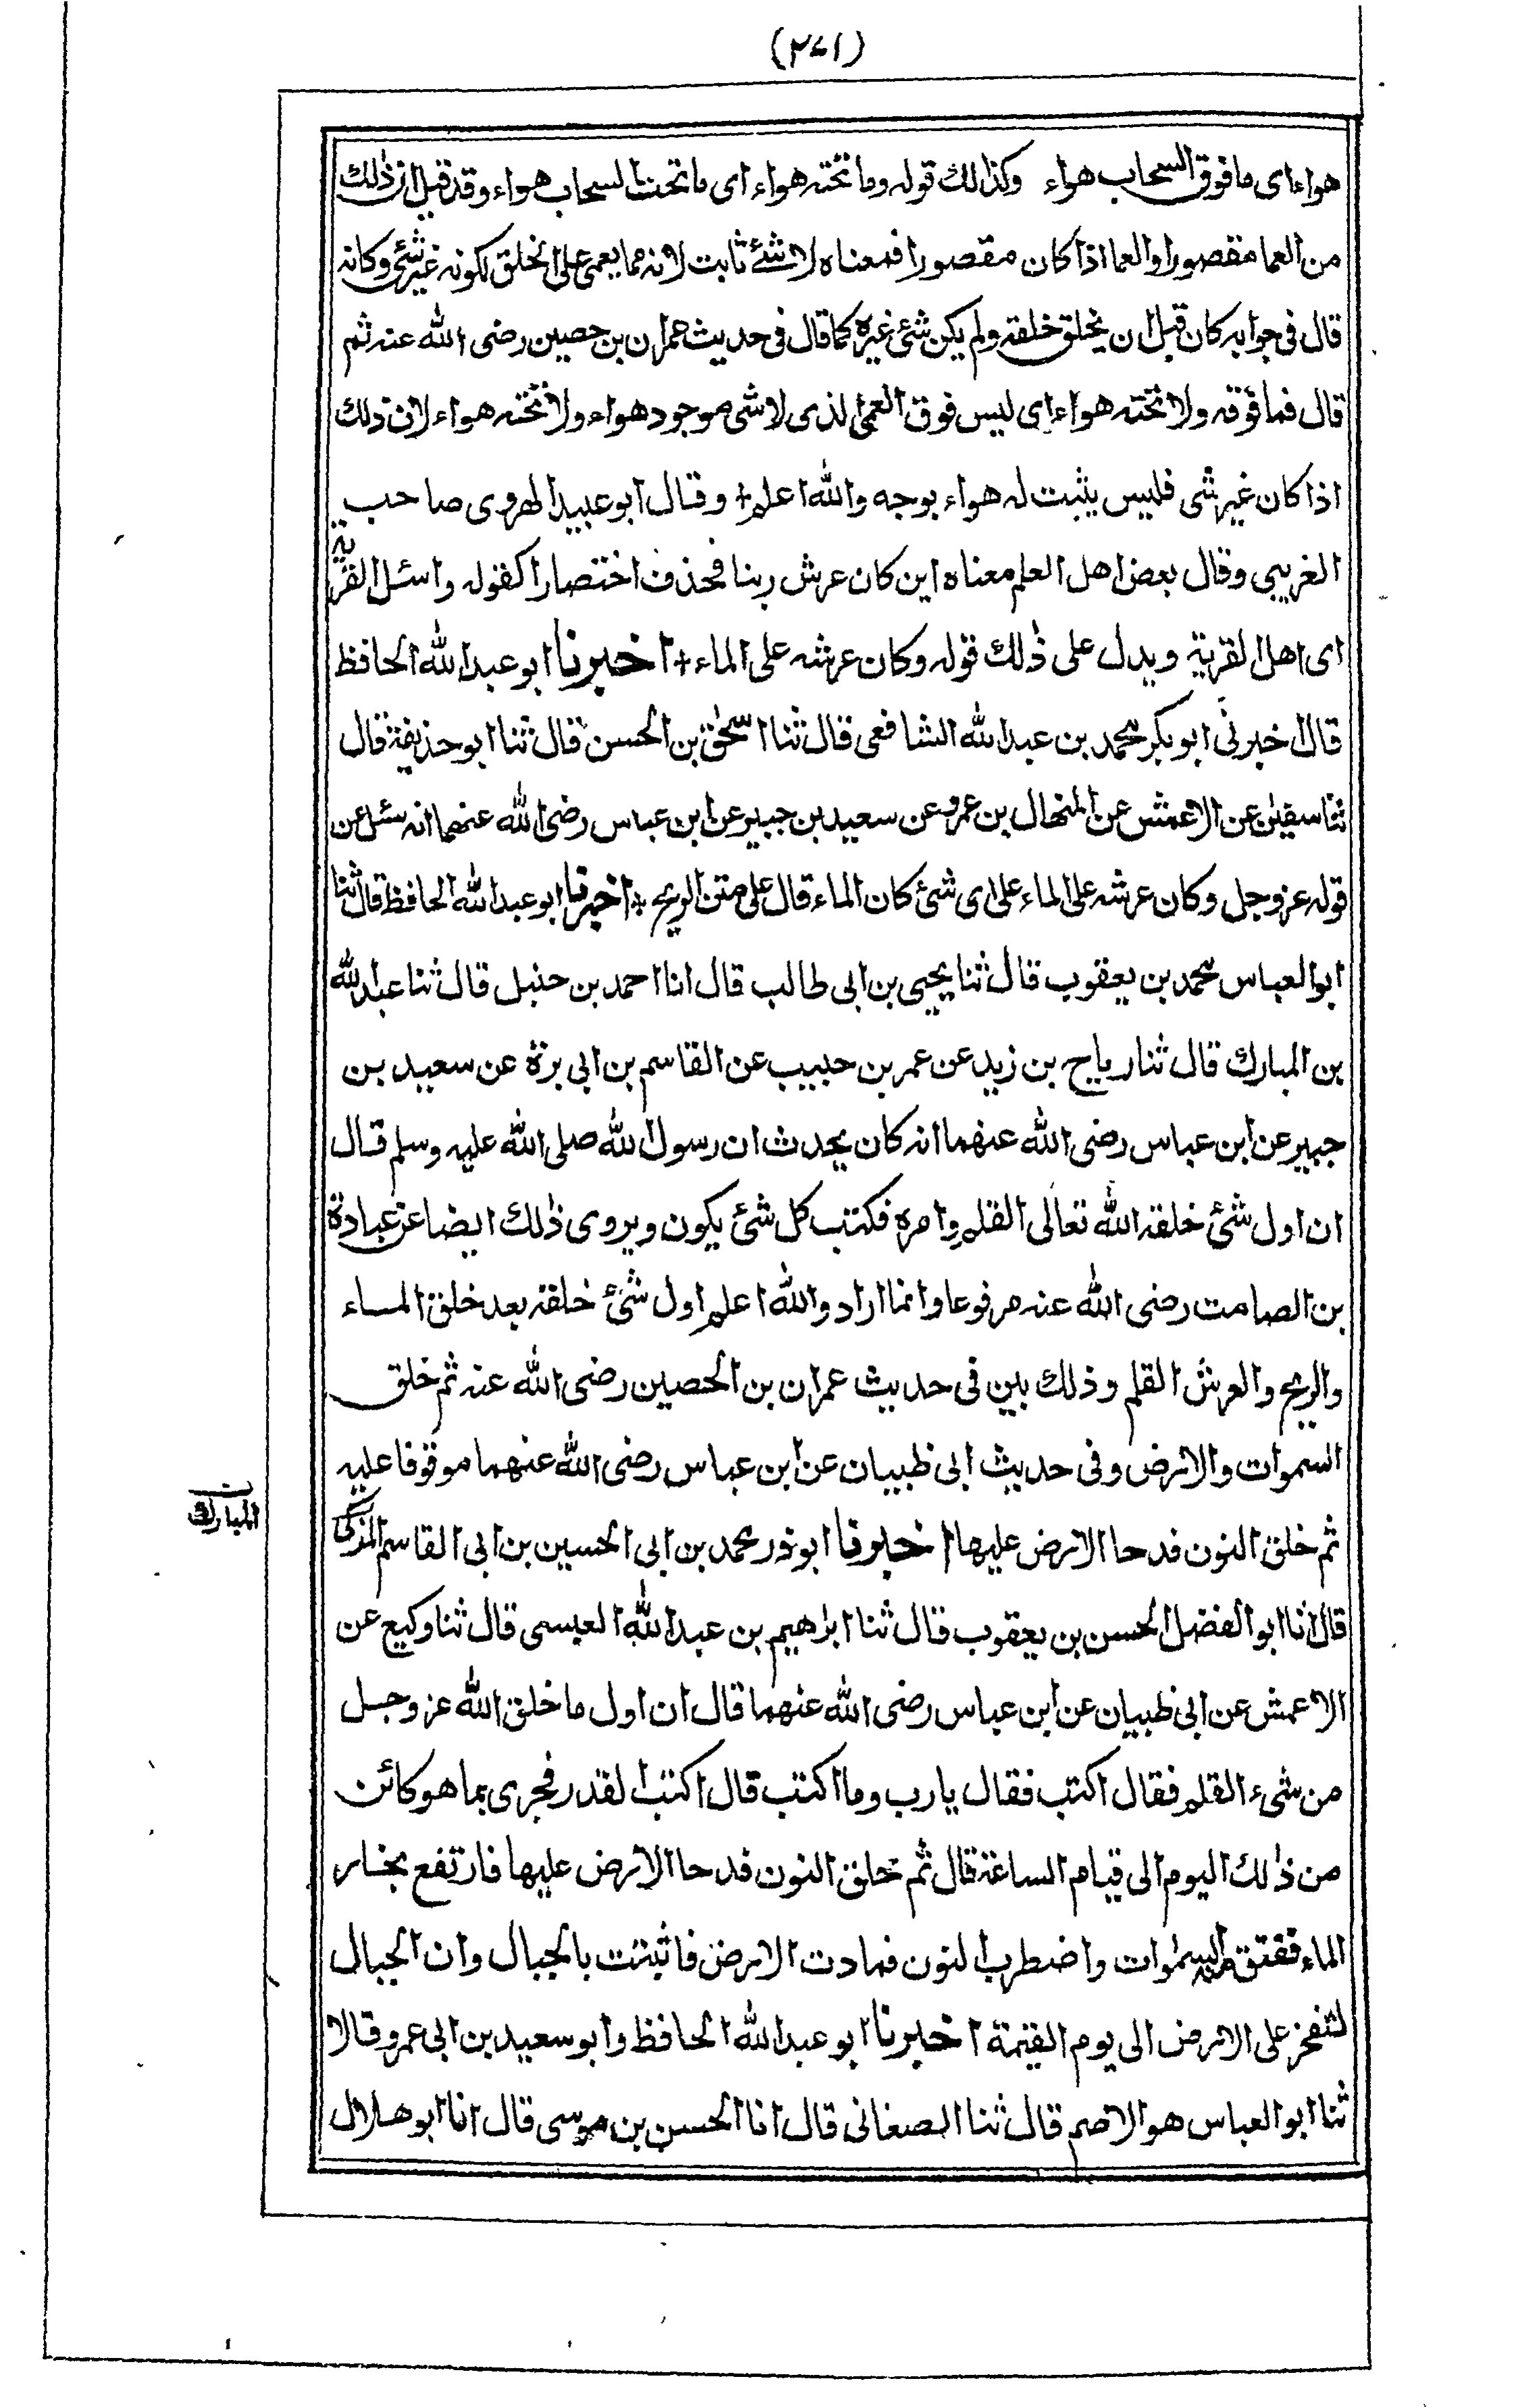 (٢٧١)
هواء اى ما فوق السحاب هواء وكذالك قوله وما تحته هواء اى ما تحت السحاب هواء وقد قيل ان ذلك
من العما مقصورا والعما اذا كان مقصورا فمعناه لا شئ ثابت لانه مما يعمى على الخلق لكونه غير شئ وكانه
قال فى جوابه كان قبل ان يخلق خلقه ولم يكن شئ غيره كما قال فى حديث عمران بن حصين رضى الله عنه ثم
قال فما فوقه ولا تحته هواء اى ليس فوق العمى الذى لا شى موجود هواء ولا تحته هواء لان ذلك
اذا كان غير شى فليس يثبت له هواء بوجه والله اعلم + وقال ابو عبيد الهروى صاحب
الغريبى وقال بعض اهل العلم معناه اين كان عرش ربنا فحذف اختصارا كقوله واسئل القرية
اى اهل القرية ويدل على ذلك قوله وكان عرشه على الماء + اخبرنا ابو عبد الله الحافظ
قال اخبرنى ابو بكر محمد بن عبد الله الشافعى قال ثنا اسحق بن الحسن قال ثنا ابو حذيفة قال
ثنا سفين عن الاعمش عن المنهال بن عمرو عن سعيد بن جبير عن ابن عباس رضى الله عنهما انه سئل عن
قوله عز وجل وكان عرشه على الماء على اى شئ كان الماء قال على متن الريح + اخبرنا ابو عبد الله الحافظ قال ثنا
ابو العباس محمد بن يعقوب قال ثنا يحيى بن ابى طالب قال انا احمد بن حنبل قال ثنا عبد الله
بن المبارك قال ثنا رياح بن زيد عن عمر بن حبيب عن القاسم بن ابى بزة عن سعيد بن
جبير عن ابن عباس رضى الله عنهما انه كان يحدث ان رسول الله صلى الله عليه وسلم قال
ان اول شئ خلقه الله تعالى القلم وامره فكتب كل شئ يكون ويروى ذلك ايضا عن عبادة
بن الصامت رضى الله عنه مرفوعا وانما اراد والله اعلم اول شئ خلقه بعد خلق الماء
والريح والعرش القلم وذلك بين فى حديث عمران بن الحصين رضى الله عنه ثم خلق
السموات والارض وفى حديث ابى ظبيان عن ابن عباس رضى الله عنهما موقوفا عليه
ثم خلق النون فدحا الارض عليها اخبرنا ابو ذر محمد بن ابى الحسين بن ابى القاسم المزكى
المبارك
قال انا ابو الفضل الحسن بن يعقوب قال ثنا ابراهيم بن عبد الله العبسى قال ثنا وكيع عن
الاعمش عن ابى ظبيان عن ابن عباس رضى الله عنهما قال ان اول ما خلق الله عز وجل
من شىء القلم فقال اكتب فقال يا رب وما اكتب قال اكتب القدر فجرى بما هو كائن
من ذلك اليوم الى قيام الساعة قال ثم خلق النون فدحا الارض عليها فارتفع بخار
الماء ففتق منه السموات واضطرب النون فمادت الارض فاثبتت بالجبال وان الجبال
لتفخر على الارض الى يوم القيمة اخبرنا ابو عبد الله الحافظ وابو سعيد بن ابى عمرو قالا
ثنا ابو العباس هو الاصم قال ثنا الصغانى قال انا الحسن بن موسى قال انا ابو هلال